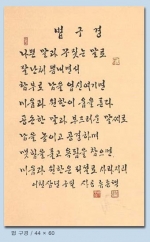 법구경
나쁜 말과 꾸짖는 말로
잘난체 뽐내면서
함부로 남을 업신여기면
미움과 원한이 움튼다
공손한 말과 부드러운 말씨로
남을 높이고 공경하며
맺힘을 풀고 욕됨을 참으면
미움과 원한은 저절로 사라지리
법 구경 / 44 × 60